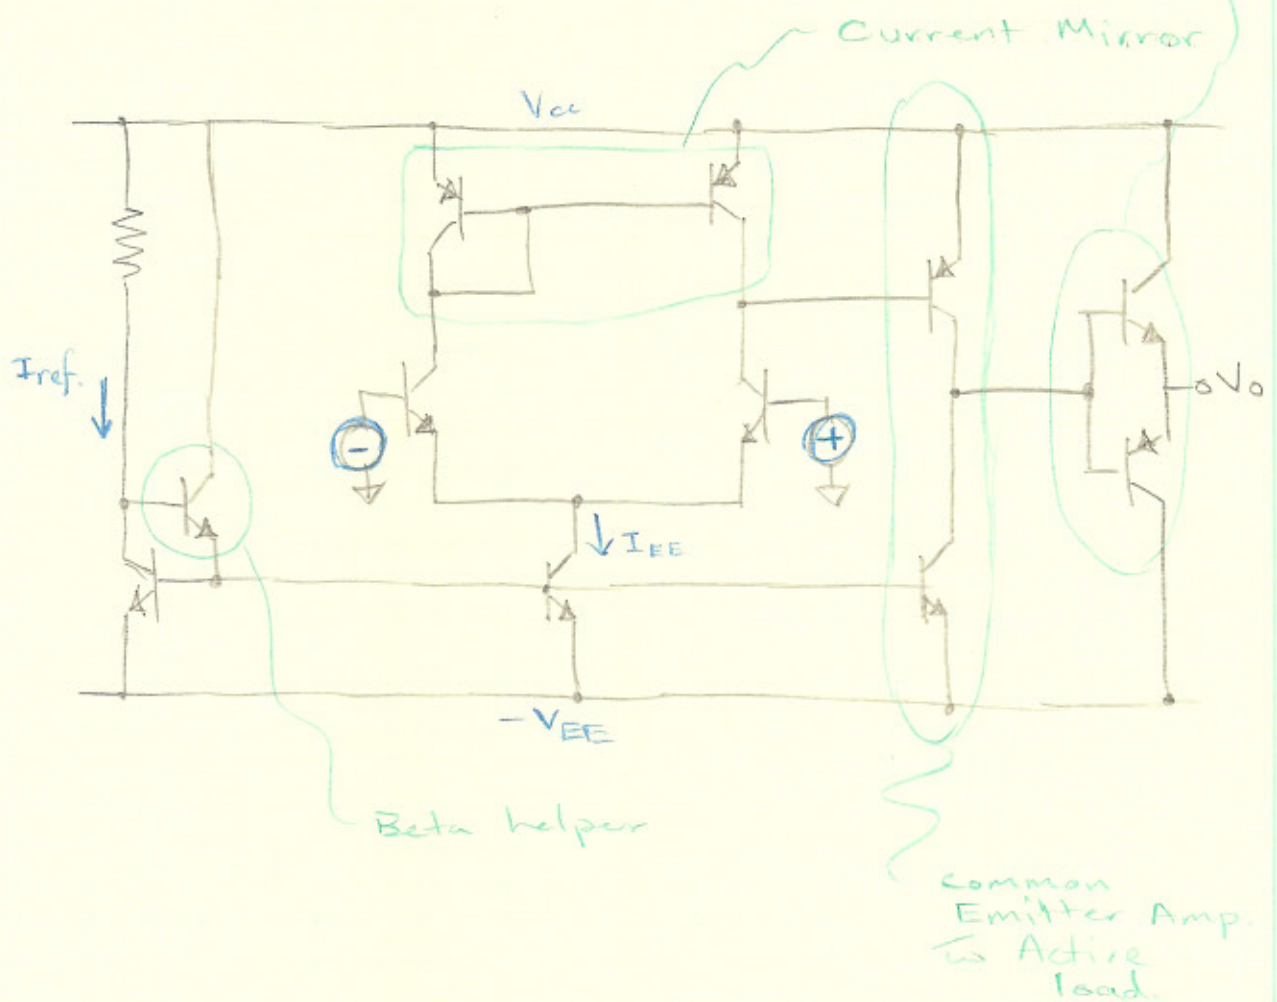 Current Mirror
Vcc
Iref.
-
+
Vo
IEE
-VEE
Beta helper
Common
Emitter Amp.
w Active
load.